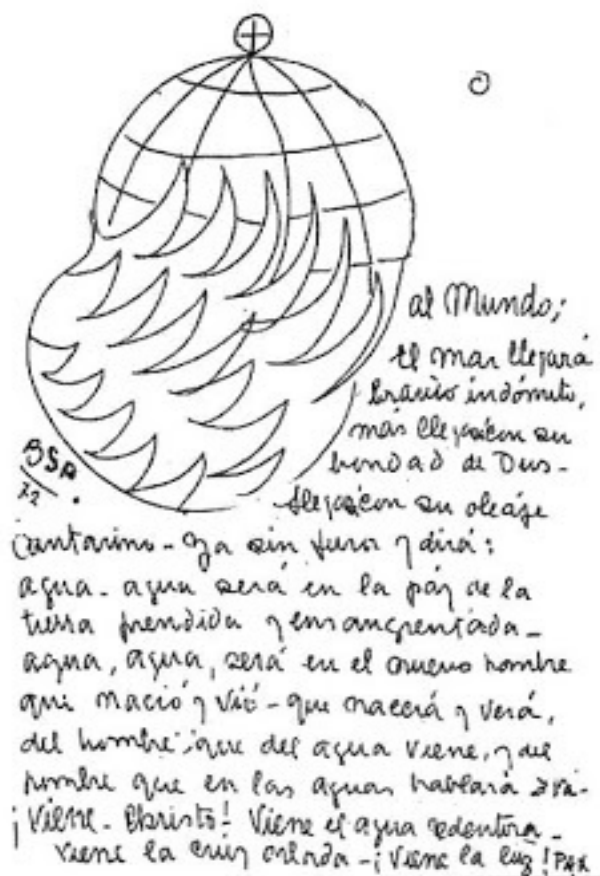 al Mundo;
El mar llegará
bravío indómito,
más llegará con su
bondad de Dios-
llegará con su oleaje
BSP
72
cantarino - ya sin furor y dirá:
agua - agua será en la paz de la
tierra prendida y ensangrentada -
agua, agua, será en el nuevo hombre
que nació y vió - que nacerá y verá,
del hombre, que del agua viene, y del
hombre que en las aguas hablará
¡Viene - Christo! Viene el agua redentora -
viene la cruz orlada - ¡viene la luz! PAX